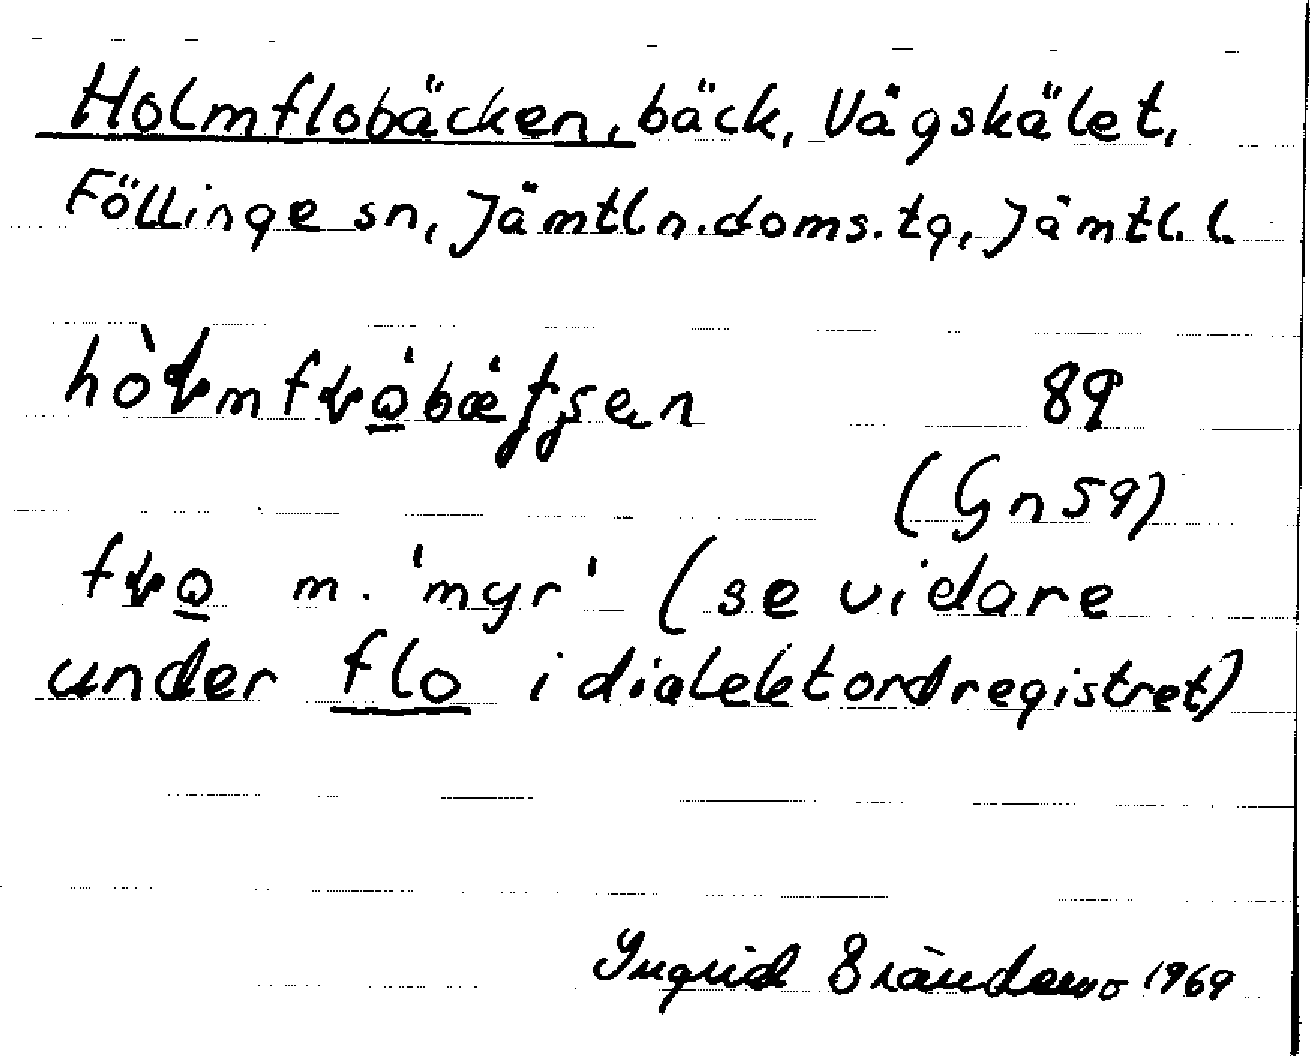 Holmflobäcken, bäck, Vågskälet,
Föllinge sn, Jämtln. doms. tg, Jämtl. l.
89
(Gn 59)
m. 'myr' (se vidare
under flo i dialektordregistret)
Ingrid Brändemo 1969